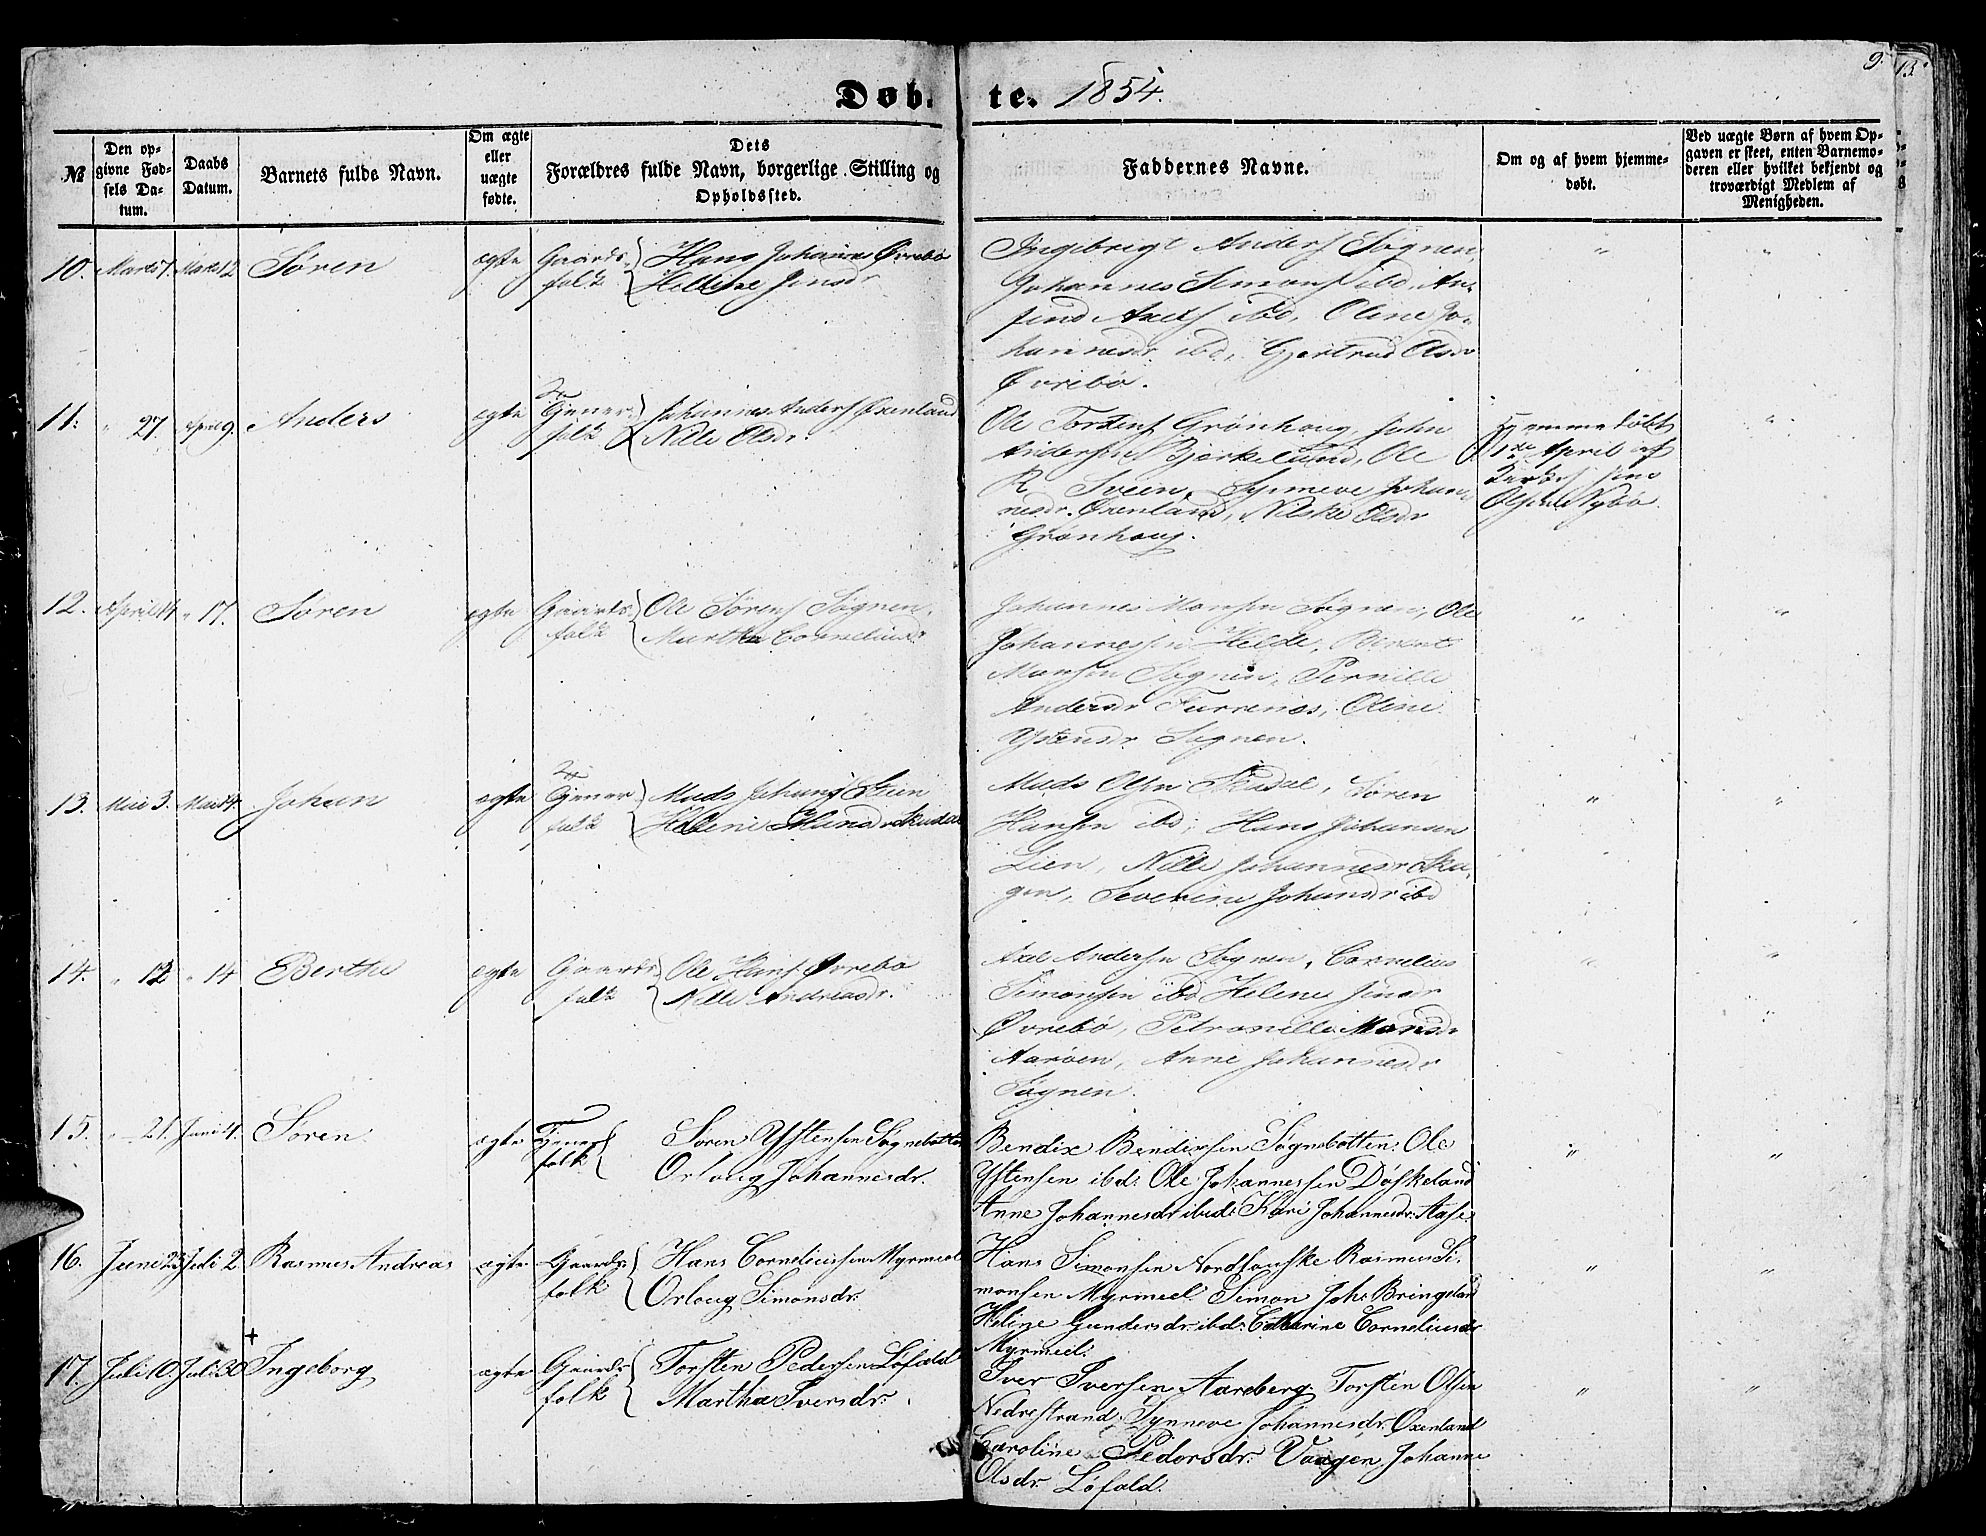 9.
13.
Døb-te. 1854.
№
Den opgivne Fødsels Datum.
Daabs Datum.
Barnets fulde Navn.
Om ægte eller uægte fødte.
Dets Forældres fulde Navn, borgerlige Stilling og Opholdssted.
Faddernes Navne.
Om og af hvem hjemmedøbt.
Ved uægte Børn af hvem Opgaven er skeet, enten Barnemoderen eller hvilket bekjendt og troværdigt Medlem af Menigheden.
10. Marts 7. Marts 12 Søren ægte Gaards- Hans Johans Øvrebø
folk Helene Jensdr
Ingebrigt Anders Søgnen,
Johannes Simons ibd, An-
find Axels ibd, Oline Jo-
hannesdr ibd, Gjertrud Olsdr
Øvrebø.
11. " 27. April 9. Anders ægte Tjener- Johannes Anders Oxenland
folk Nille Olsdr.
Ole Torstens Grønhaug, John
Andersen Bjerkeland, Ole
R Sveen, Synneve Johan-
nesdr. Oxenland, Nilske Olsdr
Grønhaug.
Hjemmedøbt
1ste April af
Olsen Nybø.
12. April 14 " 17. Søren ægte Gaards- Ole Sørens Søgnen,
folk Martha Corneliusdr
Johannes Monsen Søgnen, Ole
Johannessen Helde, Berent
Monsen Søgnen, Pernille
Andersdr Furrenes, Oline
Ystensdr Søgnen.
13. Mai 3. Mai 14. Johan ægte Tjener- Mads Johans Steen
folk Helene Skudal
Mads Olsen Skudal, Søren
Hansen ibd, Hans Johansen
Lien, Nille Johannesdr Ska-
gen, Severine Johansdr ibd
14. " 12 " 14 Berthe ægte Gaards- Ole Hans Øvrebø
folk Nille Andreasdr.
Axel Andersen Søgnen, Cornelius
Simonsen ibd Helene Jensdr
Øvrebø, Petronelle Monsdr
Aarøen, Anne Johannesdr
Søgnen.
15. " 21. Juni 4. Søren ægte Tjener- Søren Ystensen Søgnebotten
folk Orloug Johannesdr.
Bendix Bendixsen Søgnebotten: Ole
Ystensen ibd: Ole Johannessen Døskeland
Anne Johannesdr ibid: Kari Johannesdr: Aase
16. Juni 23 Juli 2. Rasmus Andreas ægte Gaards- Hans Corneliussen Myrmeel
folk Orloug Simonsdr:
Hans Simonsen Rasmus Si-
monsen Myrmeel. Simon Joh: Bringeland
Heline Gundersdr ibd: Catharine Corneliusdr
Myrmeel.
17. Juli 10. Juli 30 + Ingeborg ægte Gaards- Torsten Pedersen Løfald
folk Martha Iversdr:
Iver Iversen Aareberg Torsten Olsen
Nedrestrand. Synneve Johannesdr: Oxenland
Caroline Pedersdr: Vaagen. Johanne
Olsdr. Løfald.